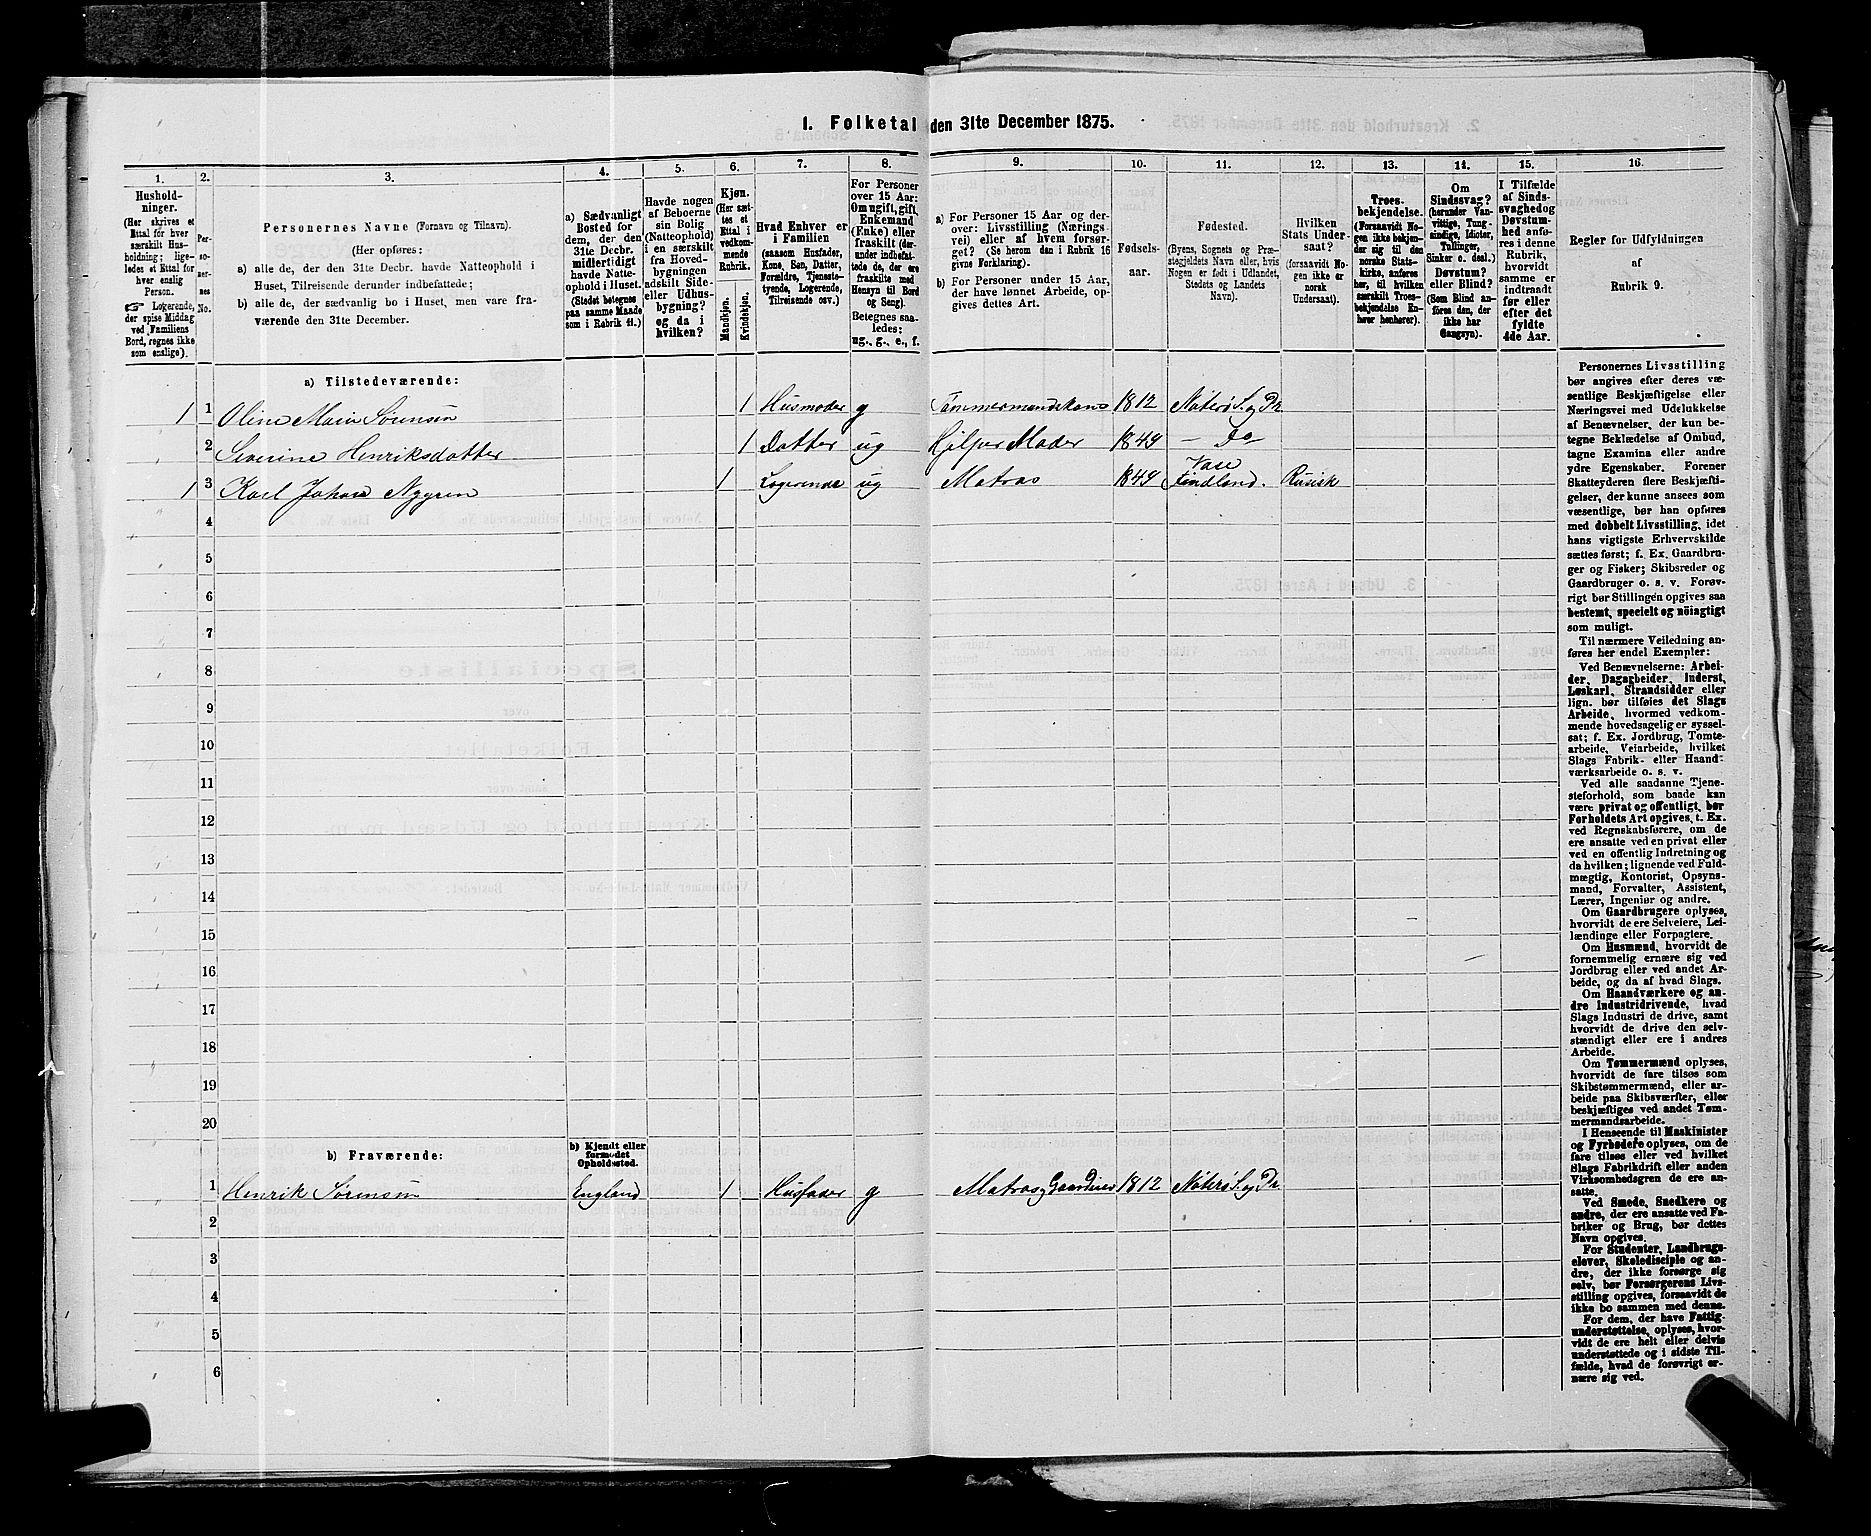 1. Folketal den 31te December 1875.
1.
Hushold-
ninger.
(Her skrives et
Ettal for hver
særskilt Hus-
holdning; lige-
ledes et Ettal for
hver enslig
Person.
☞ Logerende,
der spise Middag
ved Familiens
Bord, regnes ikke
som enslige).
2.
Per-
so-
ner-
nes
No.
3.
Personernes Navne (Fornavn og Tilnavn).
(Her opføres:
a) alle de, der den 31te Decbr. havde Natteophold i
Huset, Tilreisende derunder indbefattede;
b) alle de, der sædvanlig bo i Huset, men vare fra-
værende den 31te December.
4.
a) Sædvanligt
Bosted for
dem, der den
31te Decbr.
midlertidigt
havde Natte-
ophold i Huset.
(Stedet betegnes
paa samme Maade
som i Rubrik 11.)
5.
Havde nogen
af Beboerne
sin Bolig
(Natteophold)
i en særskilt
fra Hoved-
bygningen
adskilt Side-
eller Udhus-
bygning?
og da i
hvilken?
6.
Kjøn.
(Her sæt-
tes et
Ettal i
vedkom-
mende
Rubrik.
Mandkjøn.
Kvindekjøn.
7.
Hvad Enhver er
i Familien
(saasom Husfader,
Kone, Søn, Datter,
Forældre, Tjeneste-
tyende, Logerende,
Tilreisende osv.)
8.
For Personer
over 15 Aar:
Om ugift, gift,
Enkemand
(Enke) eller
fraskilt (der-
under indbefat-
tede de, der ere
fraskilte med
Hensyn til Bord
og Seng).
Betegnes saa-
ledes:
ug., g., e., f.
9.
a) For Personer 15 Aar og der-
over: Livsstilling (Nærings-
vei) eller af hvem forsør-
get? (Se herom den i Rubrik 16
givne Forklaring).
b) For Personer under 15 Aar,
der have lønnet Arbeide, op-
gives dettes Art.
10.
Fødsels-
aar.
11.
Fødested.
(Byens, Sognets og Præ-
stegjeldets Navn eller, hvis
Nogen er født i Udlandet,
Stedets og Landets
Navn).
12.
Hvilken
Stats Under-
saat?
(forsaavidt No-
gen ikke er
norsk
Undersaat).
13.
Troes-
bekjendelse.
(Forsaavidt No-
gen ikke bekjen-
der sig til den
norske Stats-
kirke, anføres
her, til hvilken
særskilt Troes-
bekjendelse En-
hver henhører).
14.
Om
Sindssvag?
(herunder Van-
vittige, Tung-
sindige, Idioter,
Tullinger,
Sinker o. desl.)
Døvstum?
eller Blind?
(Som Blind an-
føres den, der
ikke har
Gangsyn).
15.
I Tilfælde
af Sinds-
svaghed og
Døvstum-
hed anfø-
res i denne
Rubrik,
hvorvidt
samme er
indtraadt
før eller
efter det
fyldte
4de Aar.
16.
Regler for Udfyldningen
af
Rubrik 9.
a) Tilstedeværende:
1 1 Oline Marie Sørensen 1 Husmoder g Tømmermandskone 1812 Nøterø S. og Pr.
2 Severine Henriksdatter 1 Datter ug Hjelper Moder 1849 — Do —
1 3 Karl Johan Nygren 1 Logerende ug Matros 1849 Vase Findland. Rusisk
4
5
6
7
8
9
10
11
12
13
14
15
16
17
18
19
20
b) Fraværende:
b) Kjendt eller
formodet
Opholdssted.
1 Henrik Sørensen England 1 Husfader g Matros og Gaardeier 1812 Nøterø S. og Pr.
2
3
4
5
6
Personernes Livsstilling
bør angives efter deres væ-
sentlige Beskjæftigelse eller
Næringsvei med Udelukkelse
af Benævnelser, der kun be-
tegne Beklædelse af Ombud,
tagne Examina eller andre
ydre Egenskaber. Forener
Skatteyderen flere Beskjæfti-
gelser, der kunne ansees som
væsentlige, bør han opføres
med dobbelt Livsstilling, idet
hans vigtigste Erhvervskilde
sættes først; f. Ex. Gaardbru-
ger og Fisker; Skibsreder og
Gaardbruger o. s. v. Forøv-
rigt bør Stillingen opgives saa
bestemt, specielt og nöiagtigt
som muligt.
Til nærmere Veiledning an-
føres her endel Exempler:
Ved Benævnelserne: Arbei-
der, Dagarbeider, Inderst,
Løskarl, Strandsidder eller
lign. bør tilføies det Slags
Arbeide, hvormed vedkom-
mende hovedsagelig er syssel-
sat; f. Ex. Jordbrug, Tomte-
arbeide, Veiarbeide, hvilket
Slags Fabrik- eller Haand-
værksarbeide o. s. v.
Ved alle saadanne Tjene-
steforhold, som baade kan
være privat og offentligt, bør
Forholdets Art opgives, t. Ex.
ved Regnskabsførere, om de
ere ansatte ved en privat eller
ved en offentlig Indretning og
da hvilken; lignende ved Fuld-
mægtig, Kontorist, Opsyns-
mand, Forvalter, Assistent,
Lærer, Ingeniør og andre.
Om Gaardbrugere oplyses,
hvorvidt de ere Selveiere, Lei-
lændinge eller Forpagtere.
Om Husmænd, hvorvidt de
fornemmelig ernære sig ved
Jordbrug eller ved andet Ar-
beide, og da af hvad Slags.
Om Haandværkere og an-
dre Industridrivende, hvad
Slags Industri de drive, samt
hvorvidt de drive den selv-
stændigt eller ere i andres
Arbeide.
Om Tømmermænd oplyses,
hvorvidt de fare tilsøs som
Skibstømmermænd, eller ar-
beide paa Skibsværfter, eller
beskjæftiges ved andet Tøm-
mermandsarbeide.
I Henseende til Maskinister
og Fyrbødere oplyses, om de
fare tilsøs eller ved hvilket
Slags Fabrikdrift eller anden
Virksomhedsgren de ere an-
satte.
Ved Smede, Snedkere og
andre, der ere ansatte ved Fa-
briker og Brug, bør dettes
Navn opgives.
For Studenter, Landbrugs-
elever, Skoledisciple og an-
dre, der ikke forsørge sig
selv, bør Forsørgerens Livs-
stilling opgives, forsaavidt de
ikke bo sammen med denne.
For dem, der have Fattig-
understøttelse, oplyses, hvor-
vidt de ere helt eller delvis
understøttede og i sidste Til-
fælde, hvad de forøvrigt er-
nære sig ved.